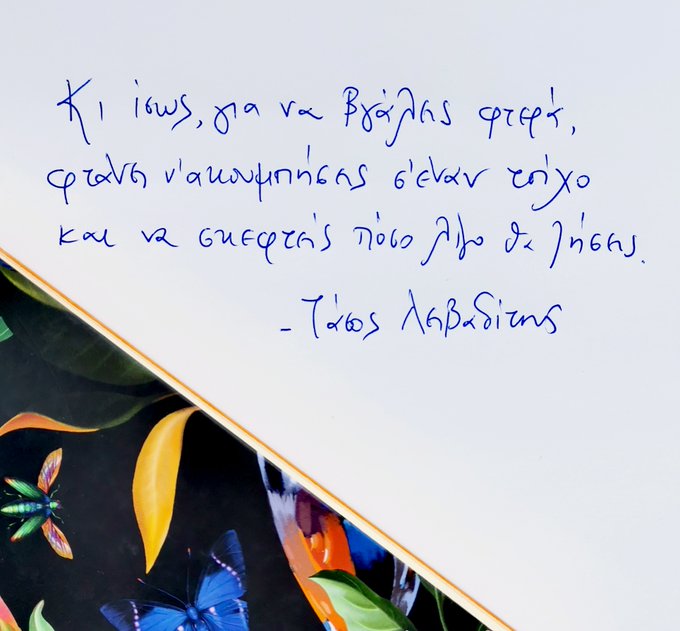 Κι ίσως, για να βγάλεις φτερά,
φτάνει ν'ακουμπήσεις σ'έναν τοίχο
και να σκεφτείς πόσο λίγο θα ζήσεις.
- Τάσος Λειβαδίτης